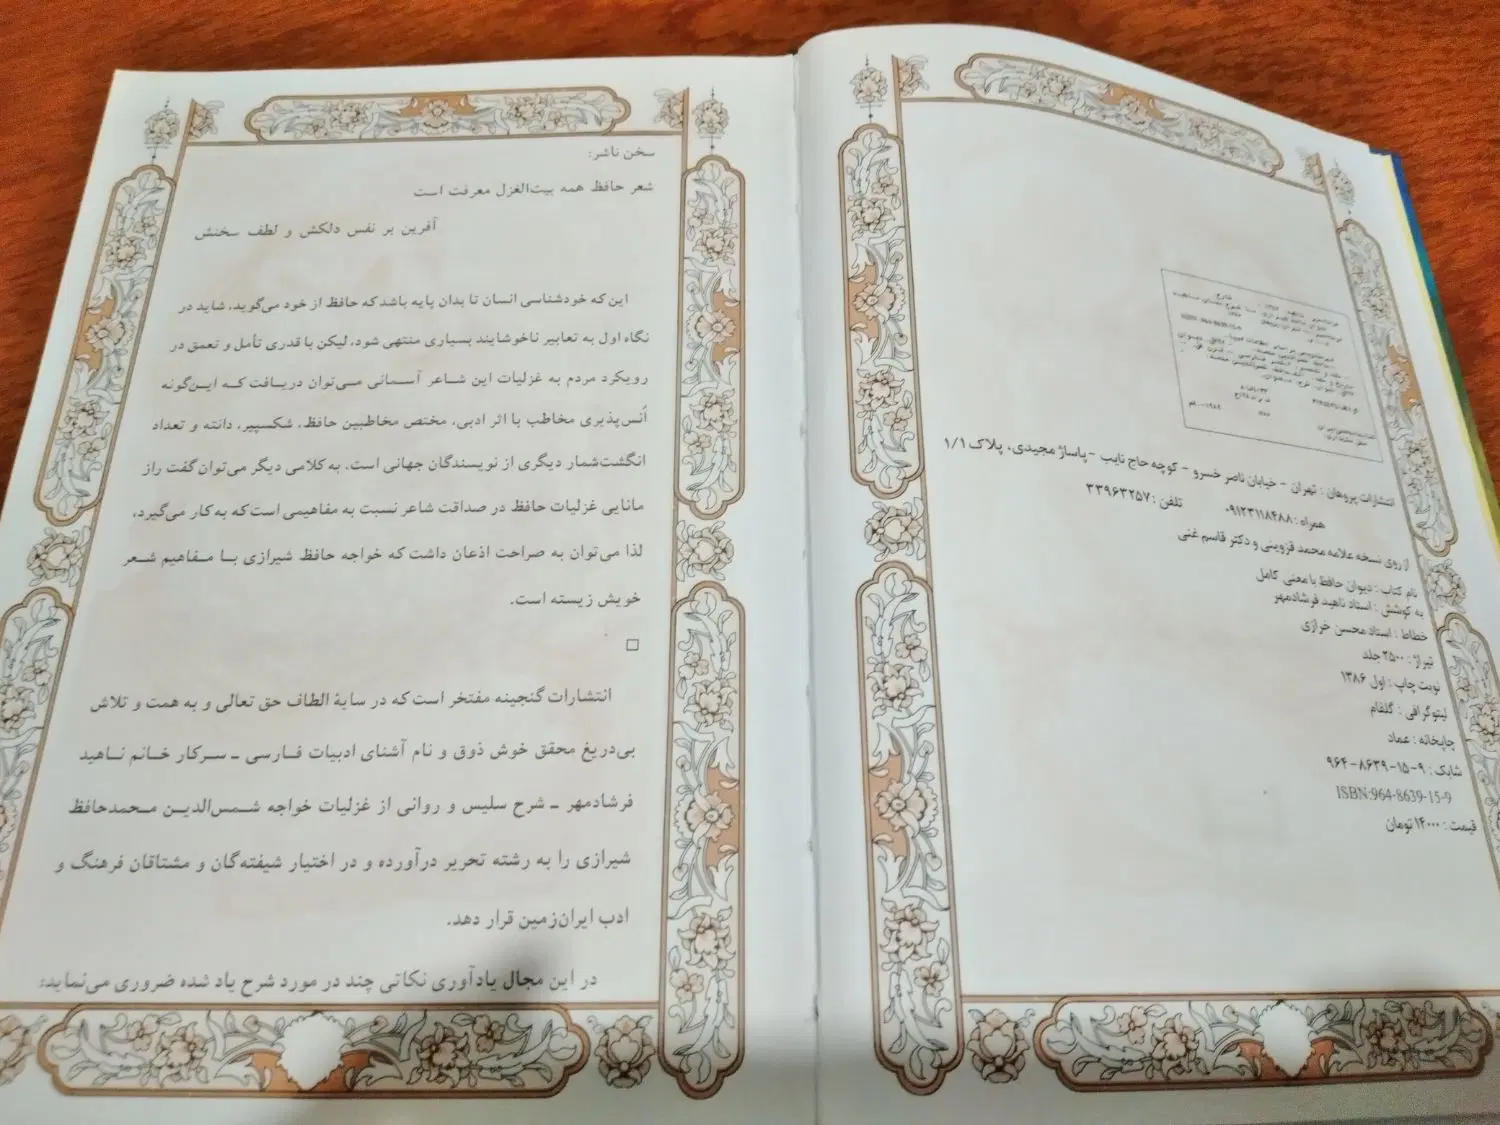 انتشارات پیروهان : تهران - خیابان ناصر خسرو - کوچه حاج نایب - پاساژ مجیدی، پلاک ۱/۱
همراه : ۰۹۱۲۳۱۱۸۴۸۸ تلفن : ۳۳۹۶۳۲۵۷
از روی نسخه علامه محمد قزوینی و دکتر قاسم غنی
نام کتاب : دیوان حافظ با معنی کامل
به کوشش : استاد ناهید فرشادمهر
خطاط : استاد محسن خرازی
تیراژ : ۲۵۰۰ جلد
نوبت چاپ : اول ۱۳۸۶
لیتوگرافی : گلفام
چاپخانه : عماد
شابک : ۹-۱۵-۸۶۳۹-۹۶۴
ISBN:964-8639-15-9
قیمت : ۱۴۰۰۰ تومان
سخن ناشر:
شعر حافظ همه بیت‌الغزل معرفت است
آفرین بر نفس دلکش و لطف سخنش
این که خودشناسی انسان تا بدان پایه باشد که حافظ از خود می‌گوید، شاید در
نگاه اول به تعابیر ناخوشایند بسیاری منتهی شود، لیکن با قدری تأمل و تعمق در
رویکرد مردم به غزلیات این شاعر آسمانی می‌توان دریافت که این‌گونه
اُنس‌پذیری مخاطب با اثر ادبی، مختص مخاطبین حافظ، شکسپیر، دانته و تعداد
انگشت‌شمار دیگری از نویسندگان جهانی است. به کلامی دیگر می‌توان گفت راز
مانایی غزلیات حافظ در صداقت شاعر نسبت به مفاهیمی است که به کار می‌گیرد،
لذا می‌توان به صراحت اذعان داشت که خواجه حافظ شیرازی با مفاهیم شعر
خویش زیسته است.
انتشارات گنجینه مفتخر است که در سایۀ الطاف حق تعالی و به همت و تلاش
بی‌دریغ محقق خوش ذوق و نام آشنای ادبیات فارسی ـ سرکار خانم ناهید
فرشادمهر ـ شرح سلیس و روانی از غزلیات خواجه شمس‌الدین محمدحافظ
شیرازی را به رشته تحریر درآورده و در اختیار شیفته‌گان و مشتاقان فرهنگ و
ادب ایران‌زمین قرار دهد.
در این مجال یادآوری نکاتی چند در مورد شرح یاد شده ضروری می‌نماید: